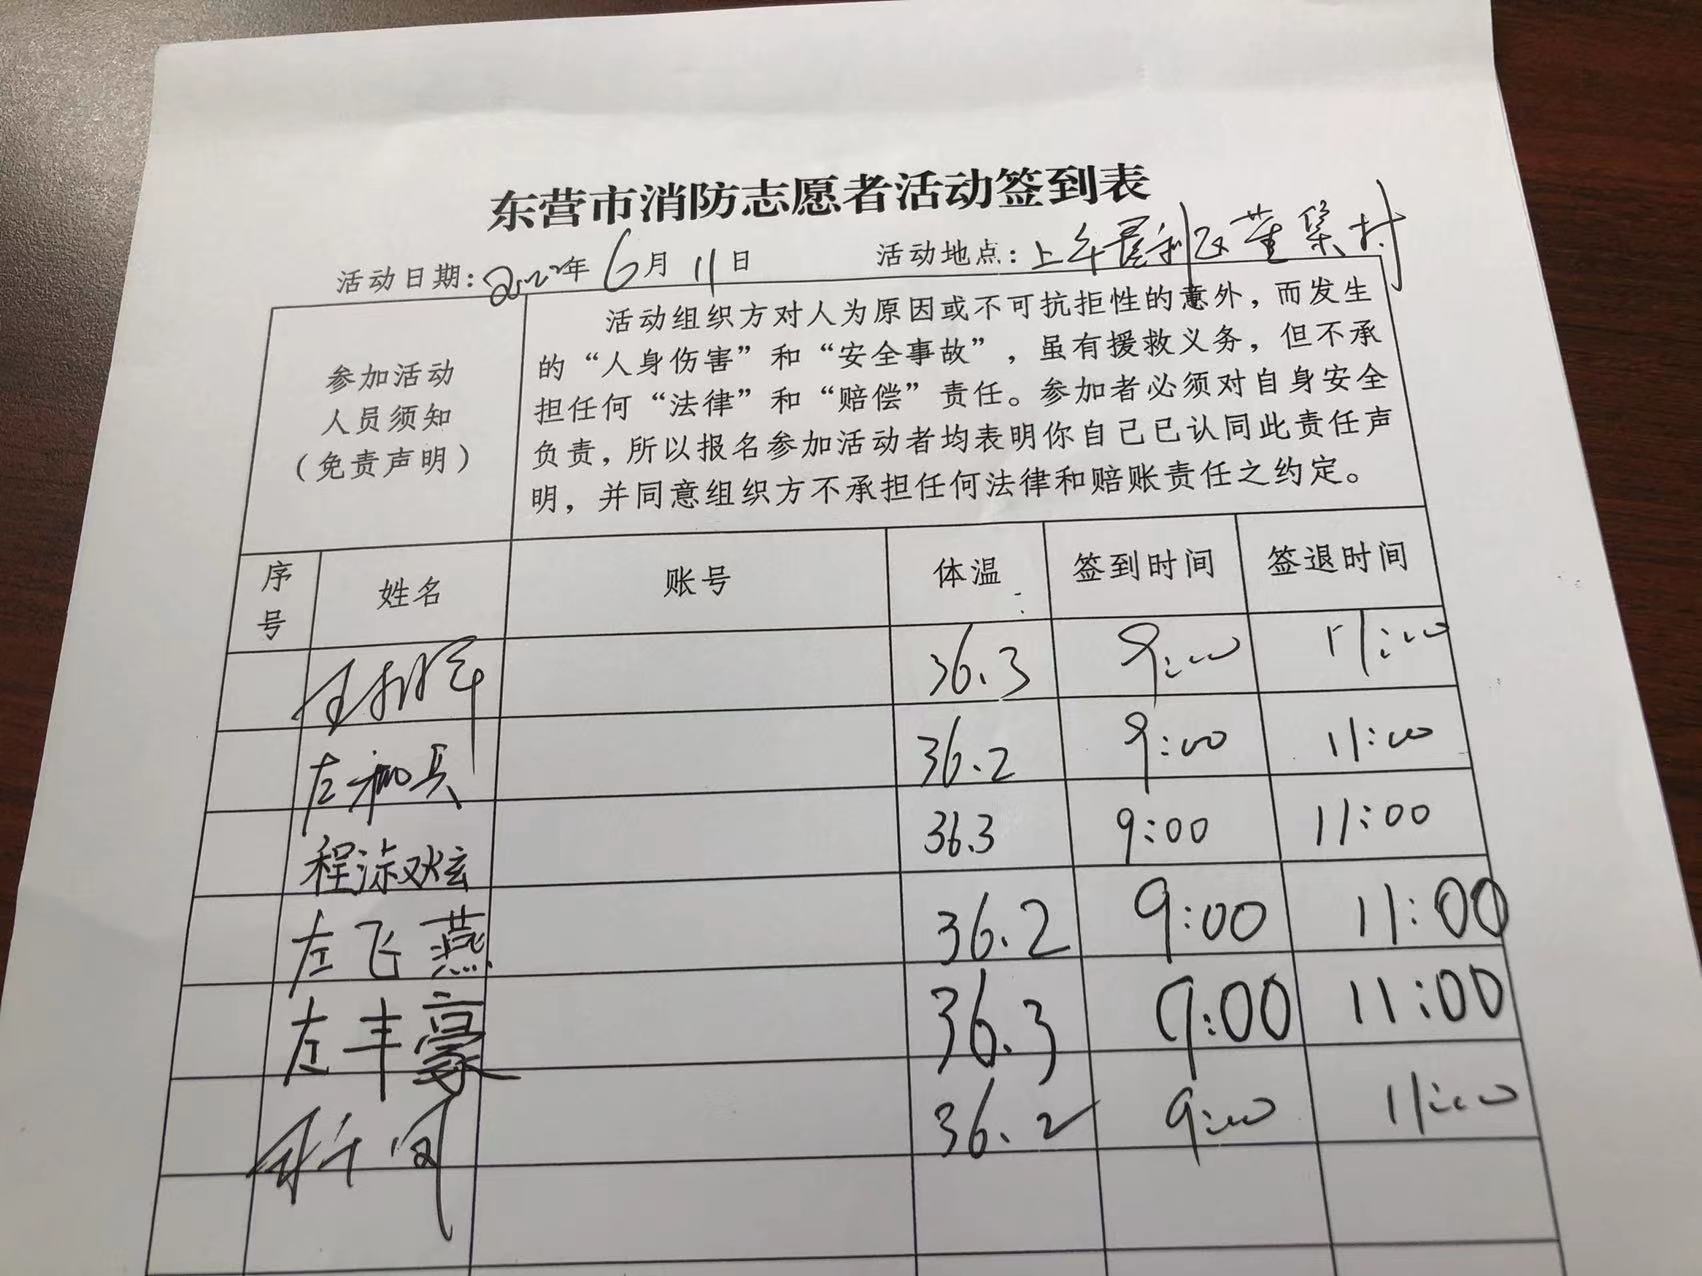 东营市消防志愿者活动签到表
活动日期:2022年 6月 11日 活动地点:上午垦利区董集村
参加活动
人员须知
(免责声明)
活动组织方对人为原因或不可抗拒性的意外,而发生
的“人身伤害”和“安全事故”,虽有援救义务,但不承
担任何“法律”和“赔偿”责任。参加者必须对自身安全
负责,所以报名参加活动者均表明你自己已认同此责任声
明,并同意组织方不承担任何法律和赔账责任之约定。
序号 姓名 账号 体温 签到时间 签退时间
36.3 9:00 11:00
左 36.2 9:00 11:00
程 36.3 9:00 11:00
左飞燕 36.2 9:00 11:00
左丰豪 36.3 9:00 11:00
36.2 9:00 11:00